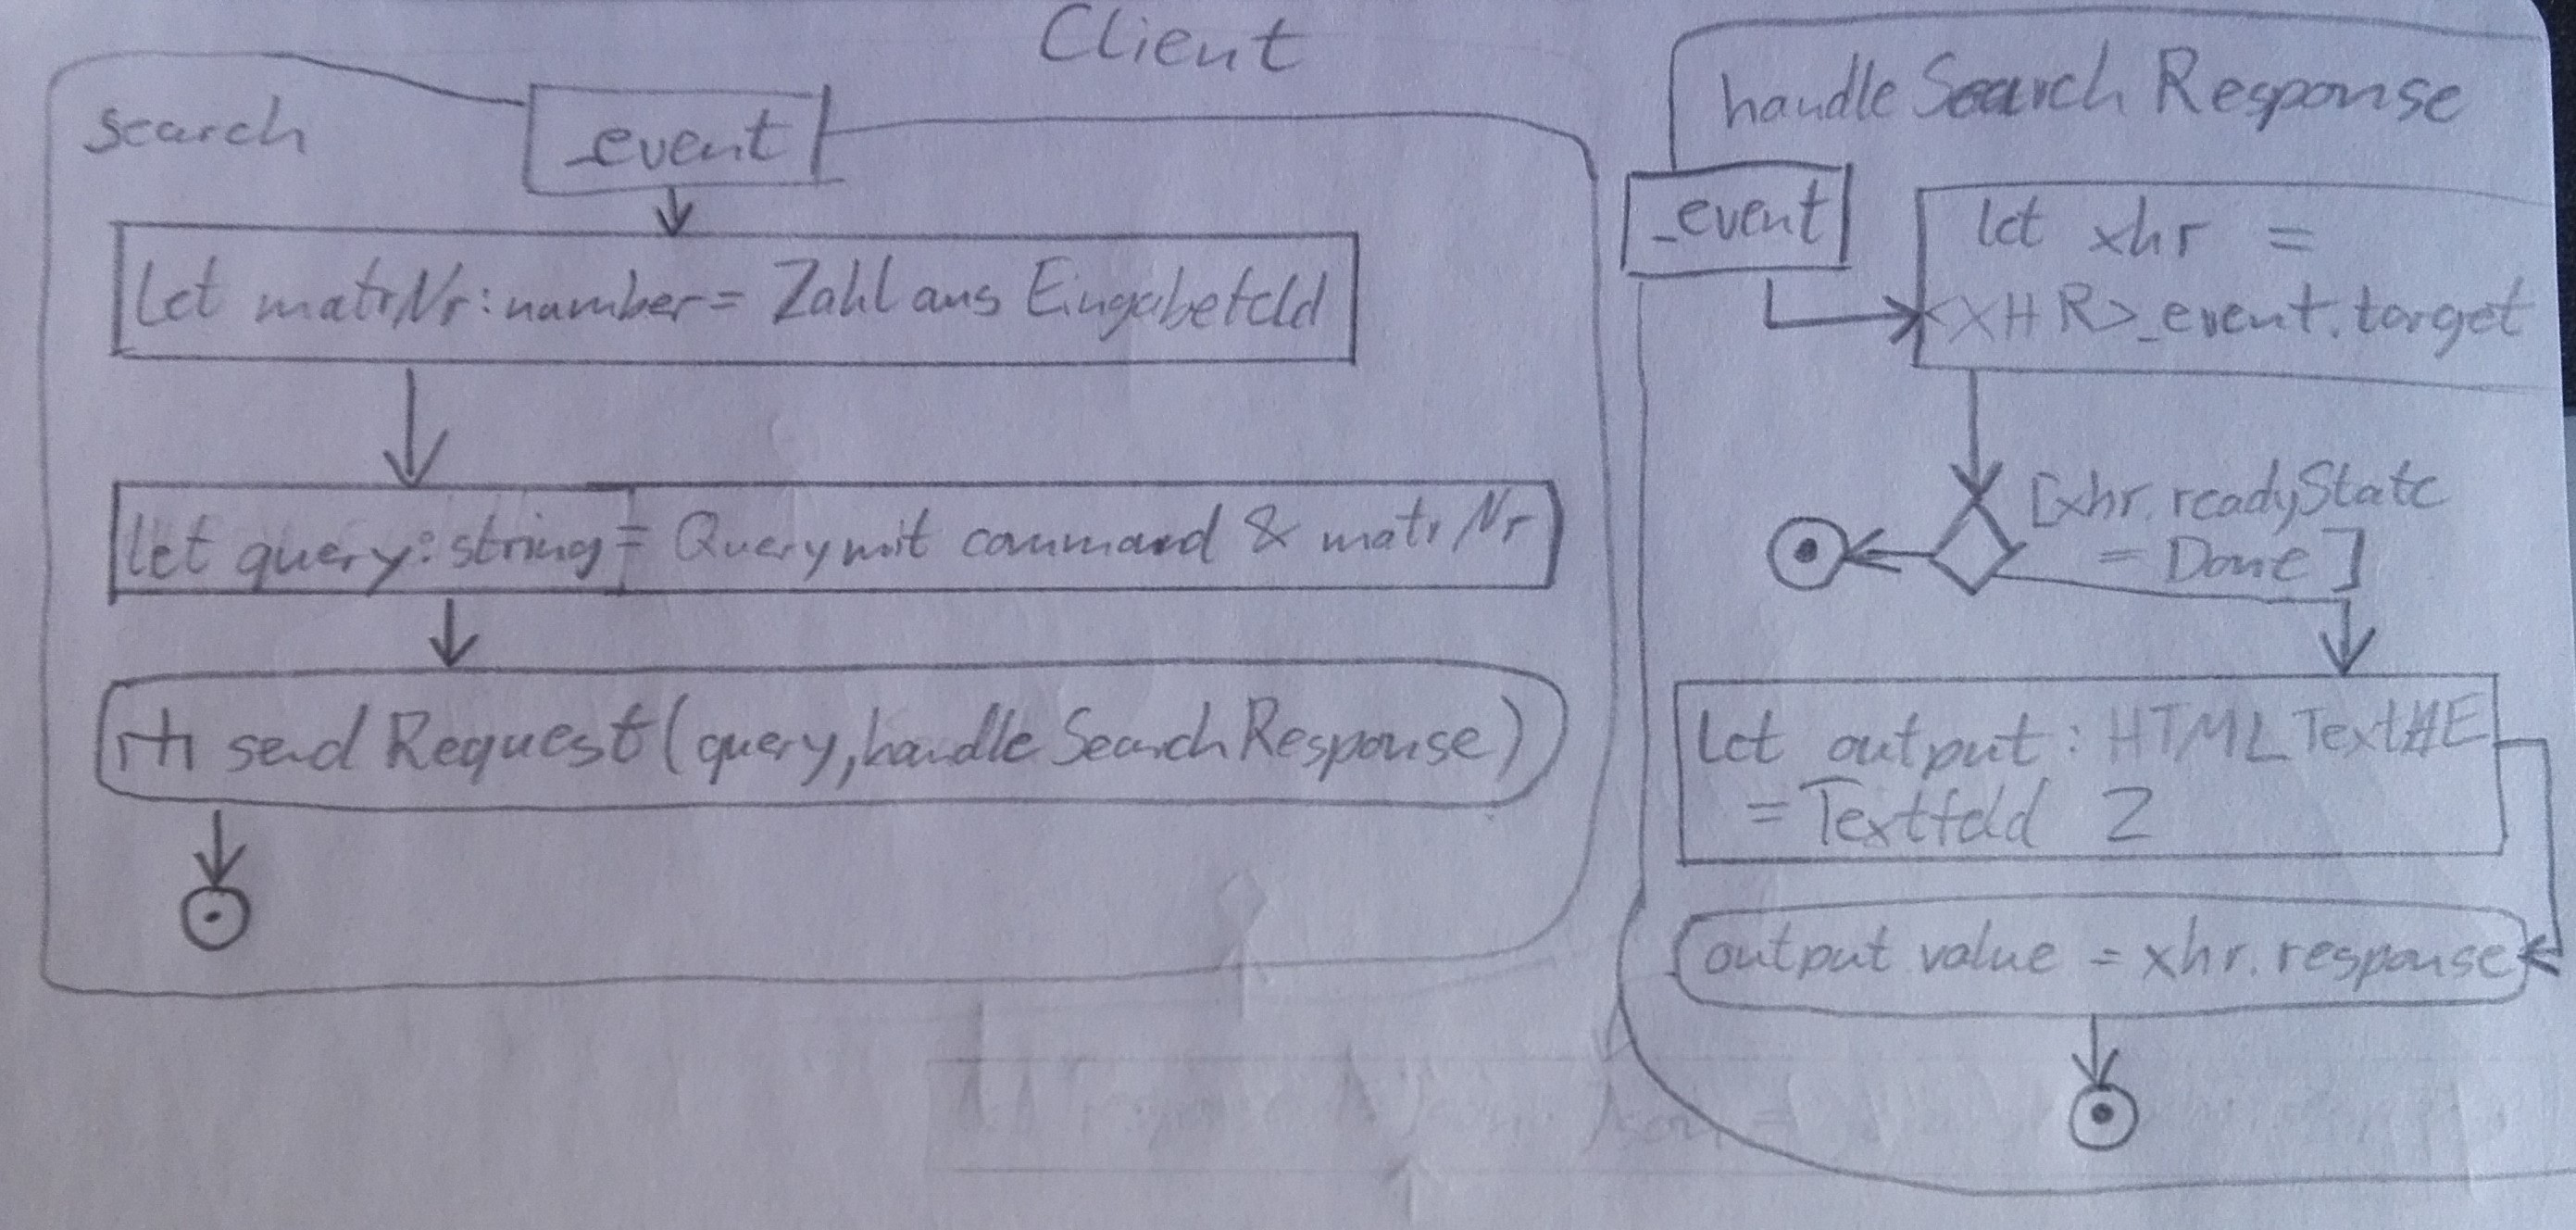 Client
search
_event
let matrNr: number = Zahl aus Eingabefeld
let query: string = Query mit command & matrNr
sendRequest(query, handleSearchResponse)
handleSearchResponse
_event
let xhr =
<XHR>_event.target
[xhr.readyState
= Done]
let output: HTMLText
= Textfeld 2
output value = xhr.response